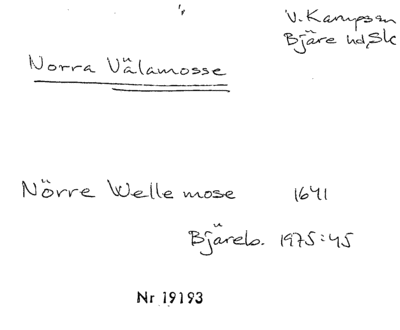 V. Karupssn
Bjäre hd, Sk
Norra Välamosse
Nörre Welle mose 1641
Bjäreb. 1975:45
Nr 19193